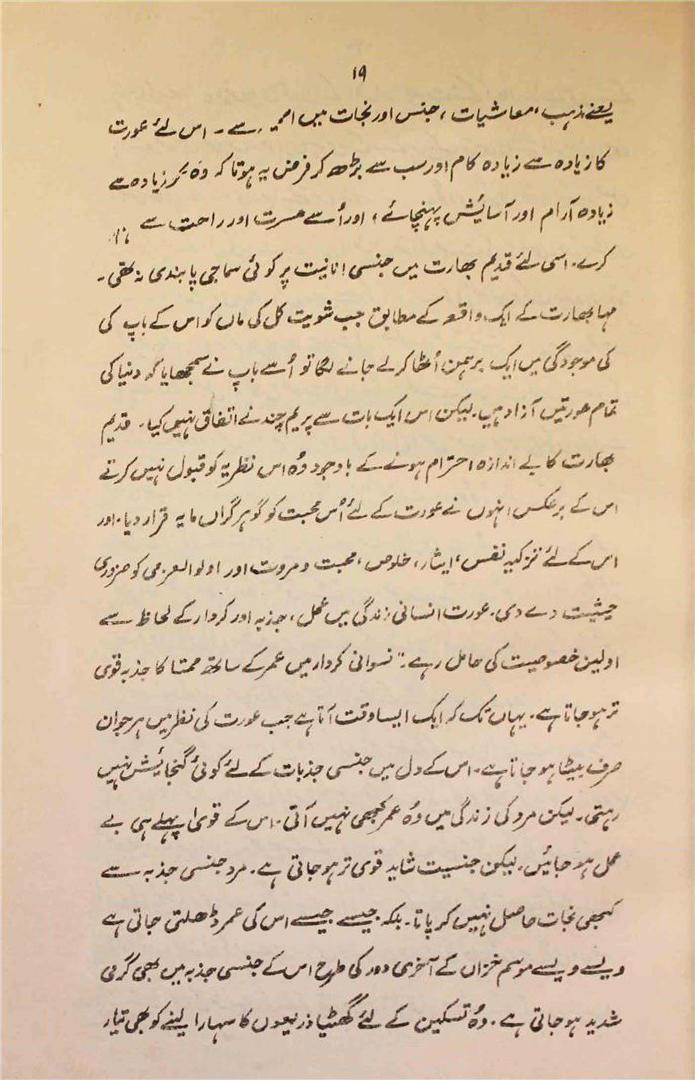 ۱۹
یعنے مذہب، معاشیات، جنس اور نجات میں اہم ہے ۔ اس لئے عورت
کا زیادہ سے زیادہ کام اور سب سے بڑھ کر فرض یہ ہوتا کہ وہ زیادہ سے
زیادہ آرام اور آسایٔش پہنچائے، اور اُسے مسرت اور راحت سے
کرے۔ اسی لئے قدیم بھارت میں جنسی انانیت پر کوئی سماجی پابندی نہ تھی ۔
مہا بھارت کے ایک واقعہ کے مطابق جب شویت کل کی ماں کو اس کے باپ کی
کی موجودگی میں ایک برہمن اُٹھا کر لے جانے لگا تو اُسے باپ نے سمجھایا کہ دنیا کی
تمام عورتیں آزاد ہیں۔ لیکن اس ایک بات سے پریم چند نے اتفاق نہیں کیا۔ قدیم
بھارت کا بے اندازہ احترام ہونے کے باوجود وُہ اس نظریہ کو قبول نہیں کرتے
اس کے برعکس انہوں نے عورت کے لئے اُس محبت کو گوہر گراں مایہ قرار دیا۔ اور
اس کے لئے تزکیہ نفس، ایثار، خلوص، محبت و مروت اور اولوالعزمی کو ضروری
حیثیت دے دی۔ عورت انسانی زندگی میں عمل، جذبہ اور کردار کے لحاظ سے
اولین خصوصیت کی حامل رہے۔" نسوانی کردار میں عمر کے ساتھ ممتا کا جذبہ قوی
تر ہو جاتا ہے۔ یہاں تک کہ ایک ایسا وقت آتا ہے جب عورت کی نظر میں ہر جوان
صرف بیٹا ہو جاتا ہے۔ اس کے دل میں جنسی جذبات کے لئے کوئی گنجائیش نہیں
رہتی۔ لیکن مرد کی زندگی میں وُہ عمر کبھی نہیں آتی۔ اس کے قویٰ پہلے ہی بے
عمل ہو جائیں۔ لیکن جنسیت شاید قوی تر ہو جاتی ہے۔ مرد جنسی جذبہ سے
کبھی نجات حاصل نہیں کر پاتا۔ بلکہ جیسے جیسے اس کی عمر ڈھلتی جاتی ہے
ویسے ویسے موسم خزاں کے آخری دور کی طرح اس کے جنسی جذبہ میں بھی گرمی
شدید ہو جاتی ہے۔ وُہ تسکین کے لئے گھٹیا ذریعوں کا سہارا لینے کو بھی تیار